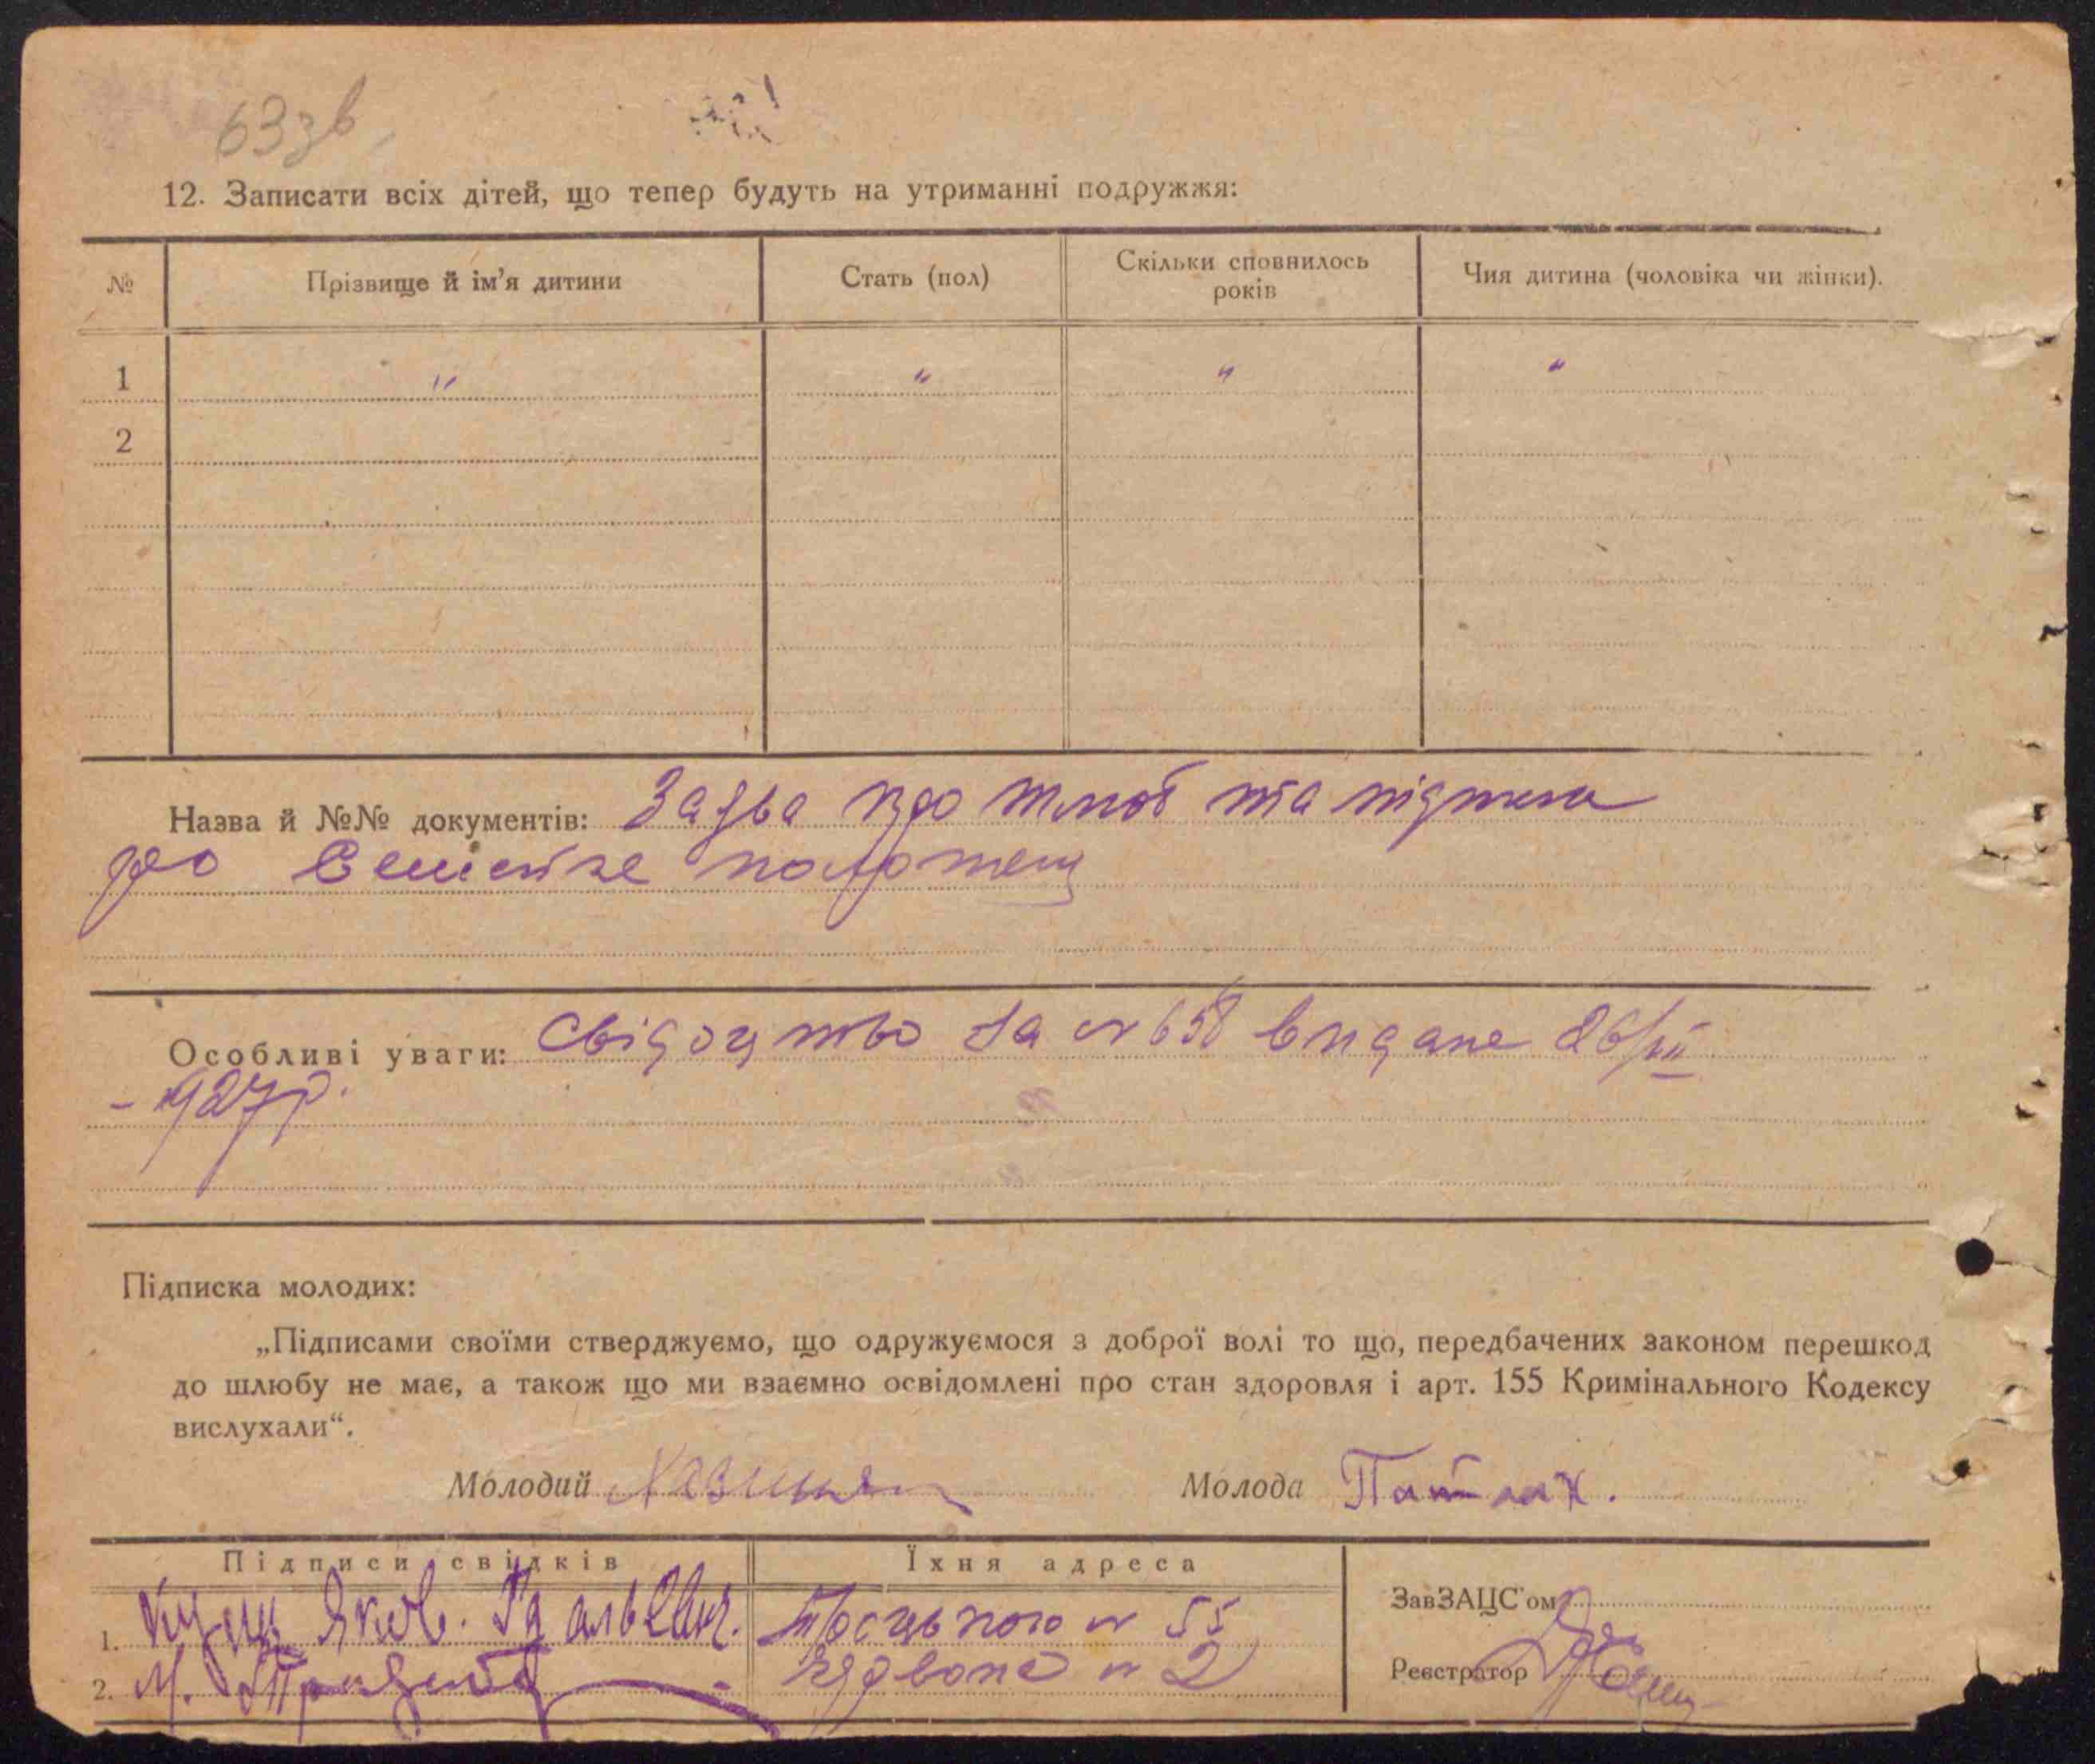 63зв
12. Записати всіх дітей, що тепер будуть на утриманні подружжя:
№ Прізвище й ім’я дитини Стать (пол) Скільки сповнилось років Чия дитина (чоловіка чи жінки).
1 " " " "
2
Назва й №№ документів: Заява про шлюб та підписка
про
Особливі уваги: Свідоцтво за № 658 видане 26/XII
- 1927р.
Підписка молодих:
„Підписами своїми стверджуємо, що одружуємося з доброї волі то що, передбачених законом перешкод
до шлюбу не має, а також що ми взаємно освідомлені про стан здоровля і арт. 155 Кримінального Кодексу
вислухали“.
Молодий Молода
Підписи свідків Їхня адреса
ЗавЗАЦС’ом
1. Яков. № 55
Реєстратор
2. М. № 2